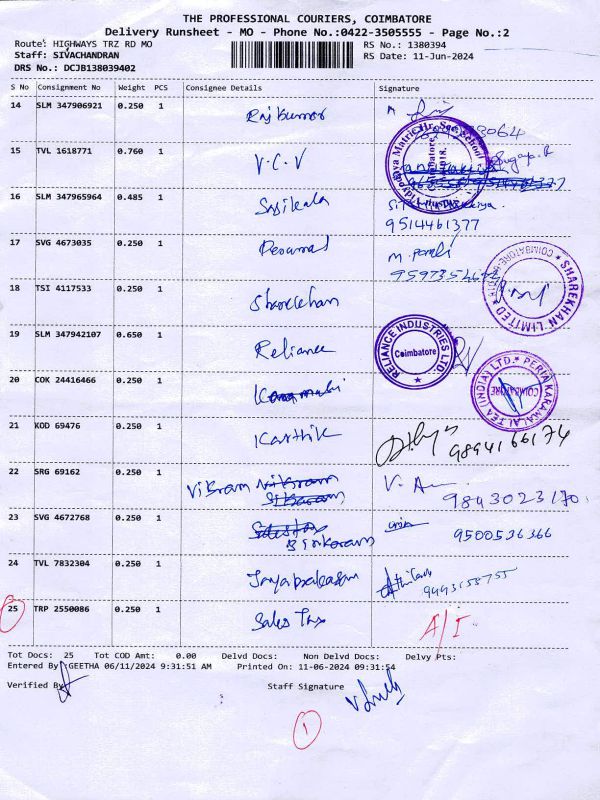 THE PROFESSIONAL COURIERS, COIMBATORE
Delivery Runsheet - MO - Phone No.:0422-3505555 - Page No.:2
Route: HIGHWAYS TRZ RD MO RS No.: 1380394
Staff: SIVACHANDRAN RS Date: 11-Jun-2024
DRS No.: DCJB138039402
S No Consignment No Weight PCS Consignee Details Signature
14 SLM 347906921 0.250 1 Raj Kumar
15 TVL 1618771 0.760 1 V.C.V
16 SLM 347965964 0.485 1 Sasikala
9514461377
17 SVG 4673035 0.250 1 Perumal M.
18 TSI 4117533 0.250 1 Sharekhan
SHAREKHAN LIMITED * COIMBATORE
19 SLM 347942107 0.650 1 Reliance
RELIANCE INDUSTRIES LTD
Coimbatore
20 COK 24416466 0.250 1
PERIA KARAMALAI TEA (INDIA) LTD. * COIMBATORE
21 KOD 69476 0.250 1 Karthik 9894166174
22 SRG 69162 0.250 1 Vikram V. A 9843023170
23 SVG 4672768 0.250 1 9500536366
24 TVL 7832304 0.250 1 Jayaprakasam
25 TRP 2550086 0.250 1 Sales Tax A/I
Tot Docs: 25 Tot COD Amt: 0.00 Delvd Docs: Non Delvd Docs: Delvy Pts:
Entered By GEETHA 06/11/2024 9:31:51 AM Printed On: 11-06-2024 09:31:54
Verified By Staff Signature
1